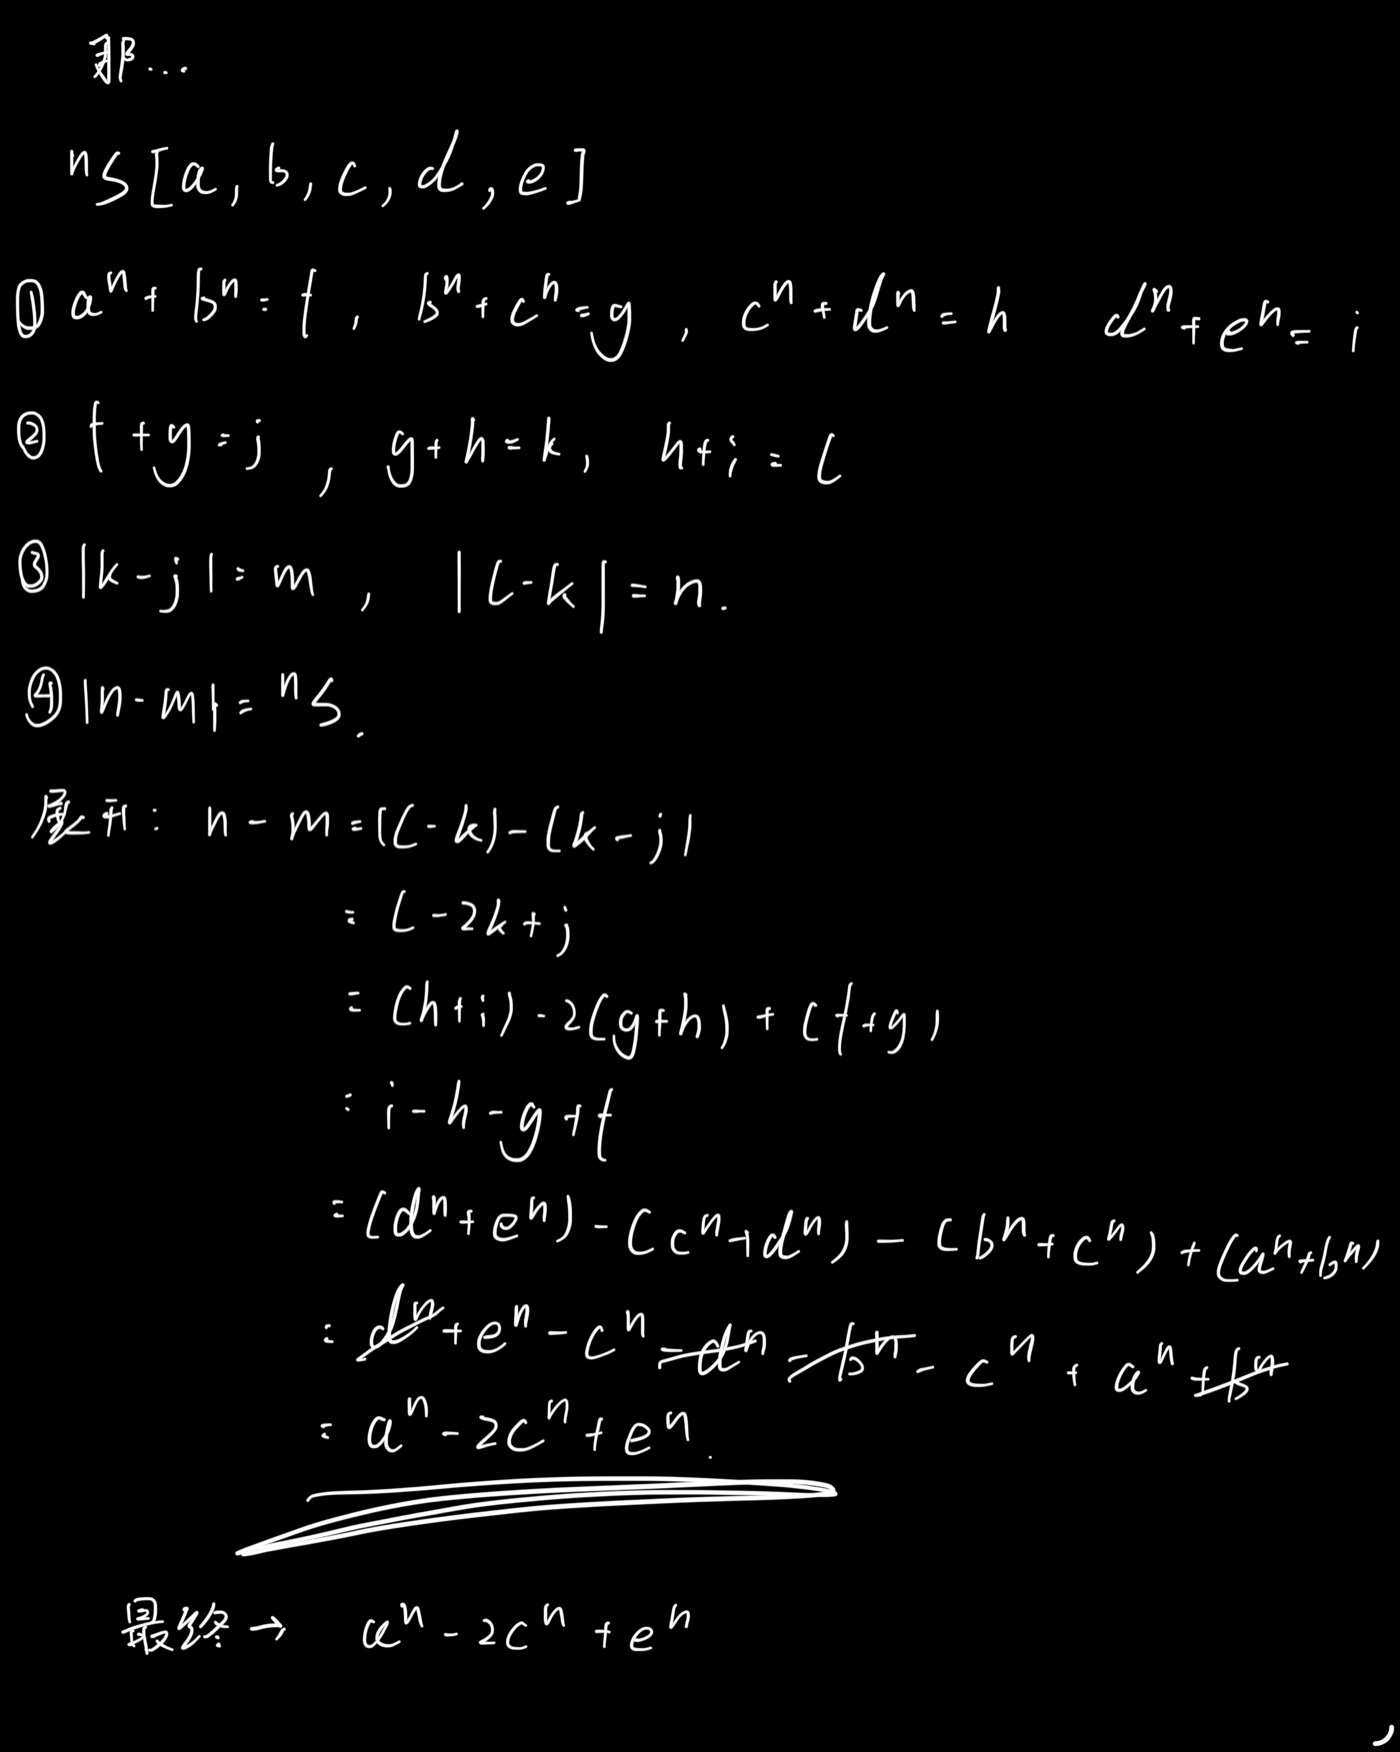 那...
ⁿS[a, b, c, d, e]
① aⁿ + bⁿ = f, bⁿ + cⁿ = g, cⁿ + dⁿ = h dⁿ + eⁿ = i
② f + g = j, g + h = k, h + i = l
③ |k - j| = m, |l - k| = n.
④ |n - m| = ⁿS.
展开: n - m = (l - k) - (k - j)
= l - 2k + j
= (h + i) - 2(g + h) + (f + g)
= i - h - g + f
= (dⁿ + eⁿ) - (cⁿ + dⁿ) - (bⁿ + cⁿ) + (aⁿ + bⁿ)
= dⁿ + eⁿ - cⁿ - dⁿ - bⁿ - cⁿ + aⁿ + bⁿ
= aⁿ - 2cⁿ + eⁿ.
最终 → aⁿ - 2cⁿ + eⁿ